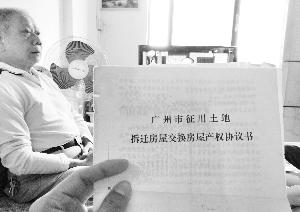 广州市征用土地
拆迁房屋交换房屋产权协议书